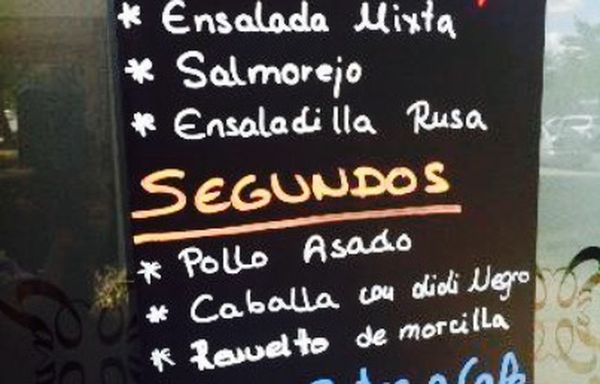 * Ensalada Mixta
* Salmorejo
* Ensaladilla Rusa
SEGUNDOS
* Pollo Asado
* Caballa con alioli Negro
* Revuelto de morcilla
o Café